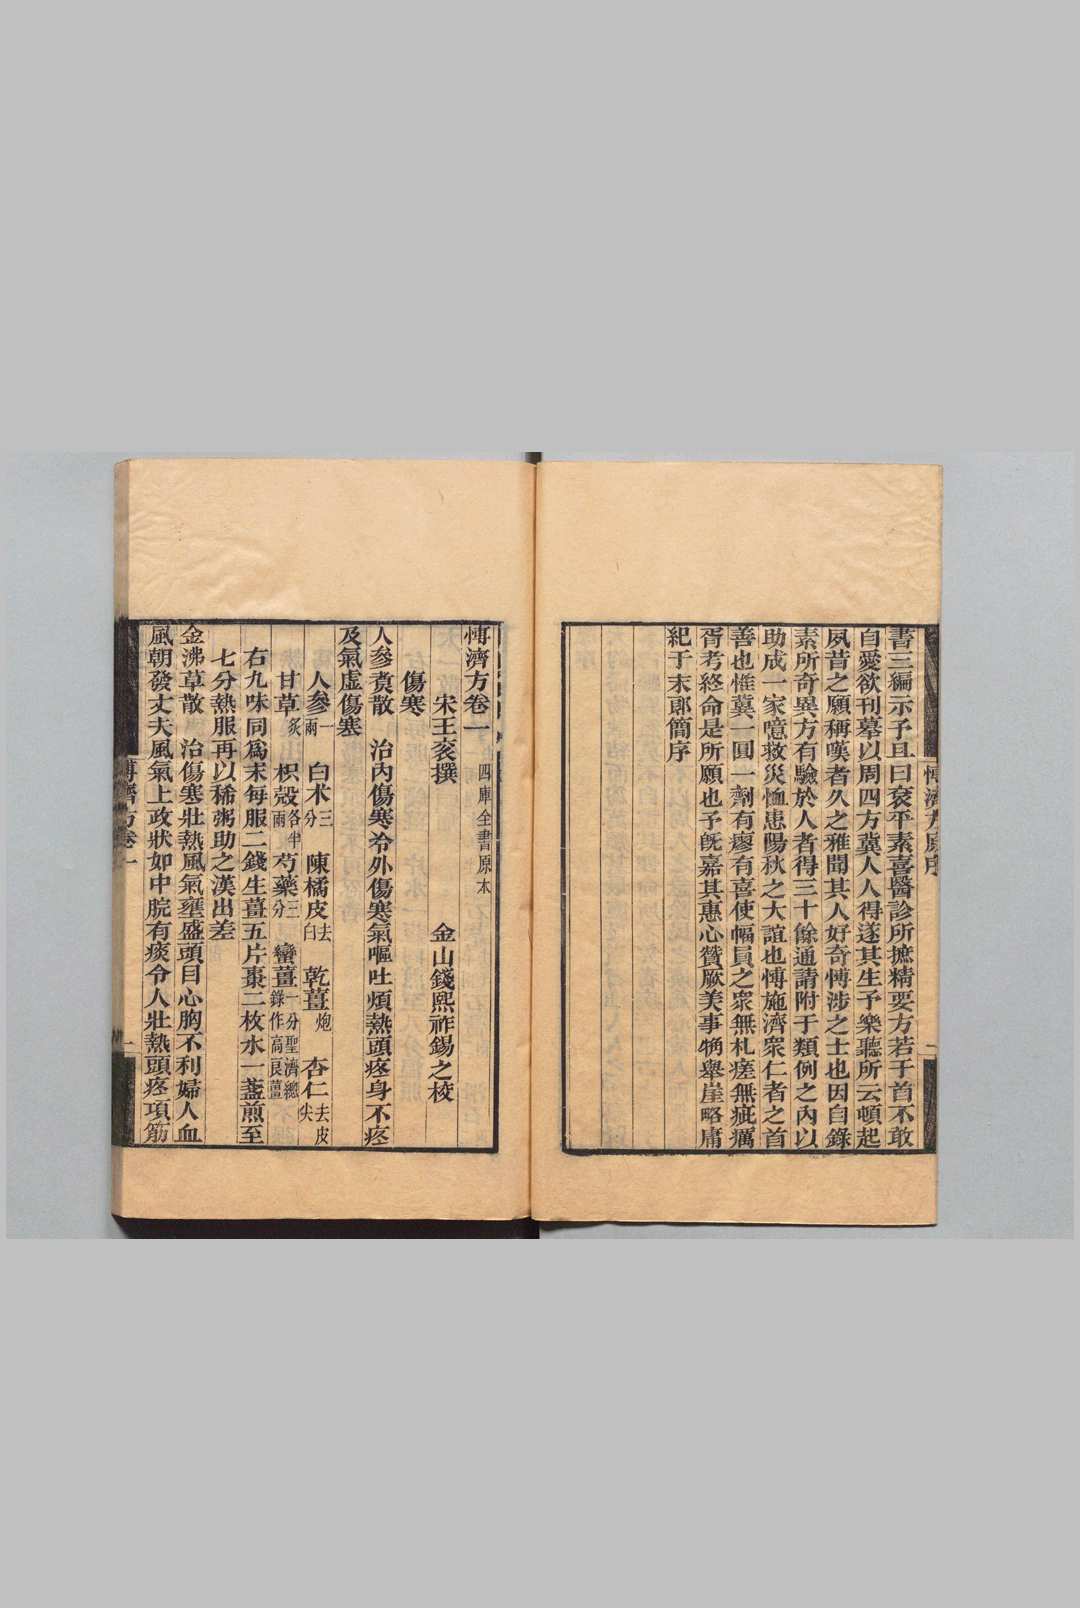 書三編示予且曰袞平素喜醫診所摭精要方若干首不敢
自愛欲刊摹以周四方冀人人得遂其生予樂聽所云頓起
夙昔之願稱嘆者久之雅聞其人好奇愽涉之士也因自錄
素所奇異方有驗於人者得三十餘通請附于類例之內以
助成一家噫救災恤患陽秋之大誼也愽施濟衆仁者之首
善也惟冀一圓一劑有瘳有喜使幅員之衆無札瘥無疵癘
胥考終命是所願也予旣嘉其惠心贊厥美事觕舉崖略庸
紀于末郎簡序
愽濟方卷一 四庫全書原本
宋王袞撰 金山錢熙祚錫之校
傷寒
人參煑散 治內傷寒冷外傷寒氣嘔吐煩熱頭疼身不疼
及氣虛傷寒
人參一兩 白术三分 陳橘皮去白 乾薑炮 杏仁去皮尖
甘草炙 枳殼各半兩 芍藥三分 蠻薑一分聖濟總錄作高良薑
右九味同爲末每服二錢生薑五片棗二枚水一盞煎至
七分熱服再以稀粥助之漢出差
金沸草散 治傷寒壯熱風氣壅盛頭目心胸不利婦人血
風朝發丈夫風氣上政狀如中脘有痰令人壯熱頭疼項筋
愽濟方卷一
一